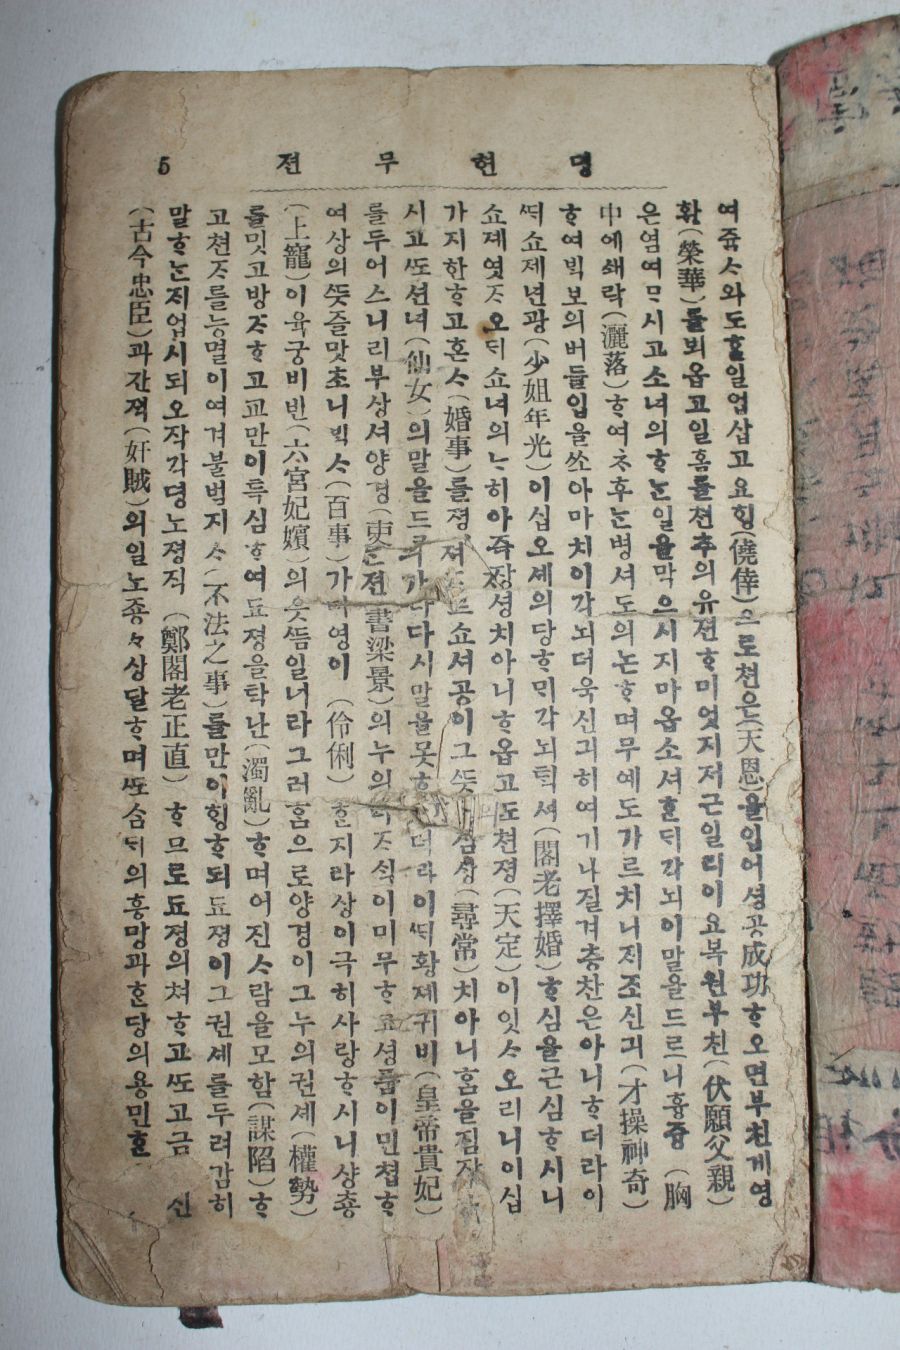 명현무전 5
여쥭ᄉᆞ와도ᄒᆞᆯ일업삽고요ᄒᆡᆼ(僥倖)으로쳔은(天恩)을입어셩공成功ᄒᆞ오면부친게영
화(榮華)를뵈옵고일홈를쳔추의유젼ᄒᆞ미엇지저근일리이요복원부친(伏願父親)
은염여마시고소녀의ᄒᆞᄂᆞᆫ일을막으시지마옵소셔ᄒᆞᆫᄃᆡ각뇌이말을드르니흉즁(胸
中에쇄락(灑落)ᄒᆞ여ᄎᆞ후ᄂᆞᆫ병셔도의논ᄒᆞ며무예도가르치니ᄌᆡ조신긔(才操神奇)
ᄒᆞ여ᄇᆡᆨ보의버들입을쏘아마치이각뇌더욱신긔히여기나질겨층찬은아니ᄒᆞ더라이
ᄯᆡ쇼졔년광(少姐年光)이십오셰의당ᄒᆞᄆᆡ각뇌ᄐᆡᆨ셔(閣老擇婚)ᄒᆞ심을근심ᄒᆞ시니
쇼졔엿ᄌᆞ오ᄃᆡ쇼녀의ᄂᆞ히아즉장셩치아니ᄒᆞ옵고ᄯᅩ쳔졍(天定)이잇ᄉᆞ오리니이십
가지한ᄒᆞ고혼ᄉᆞ(婚事)를졍 쇼셔공이그ᄯᅳᆺ 심상(尋常)치아니홈을짐작
시고ᄯᅩ션녀(仙女)의말을드 다시말을못ᄒᆞ더라이ᄯᆡ황졔귀비(皇帝貴妃)
를두어스니리부상셔양경(吏 書梁景)의누의 ᄌᆞᄉᆡᆨ이미무ᄒᆞ고셩픔이민쳡ᄒᆞ
여상의ᄯᅳᆺ즐맛초니ᄇᆡᆨᄉᆞ(百事)가 영이(伶俐)ᄒᆞᆫ지라상이극히사랑ᄒᆞ시니샹춍
(上寵)이육궁비빈(六宮妃嬪)의웃듬일너라그러홈으로양경이그누의권셰(權勢)
를밋고방ᄌᆞᄒᆞ고교만이특심ᄒᆞ여됴졍을탁난(濁亂)ᄒᆞ며어진ᄉᆞ람을모함(謀陷)ᄒᆞ
고쳔ᄌᆞ를능멸이여겨불법지ᄉᆞ(不法之事)를만이ᄒᆡᆼᄒᆞ되됴졍이그권셰를두려감히
말ᄒᆞᄂᆞᆫᄌᆡ업시되오작각뎡노졍직(鄭閣老正直)ᄒᆞ므로됴졍의쳐ᄒᆞ고ᄯᅩ고금 신
(古今忠臣)과간젹(奸賊)의일노죵々상달ᄒᆞ며ᄯᅩ슴ᄃᆡ의흥망과ᄒᆞᆫ당의용민ᄒᆞᆯ